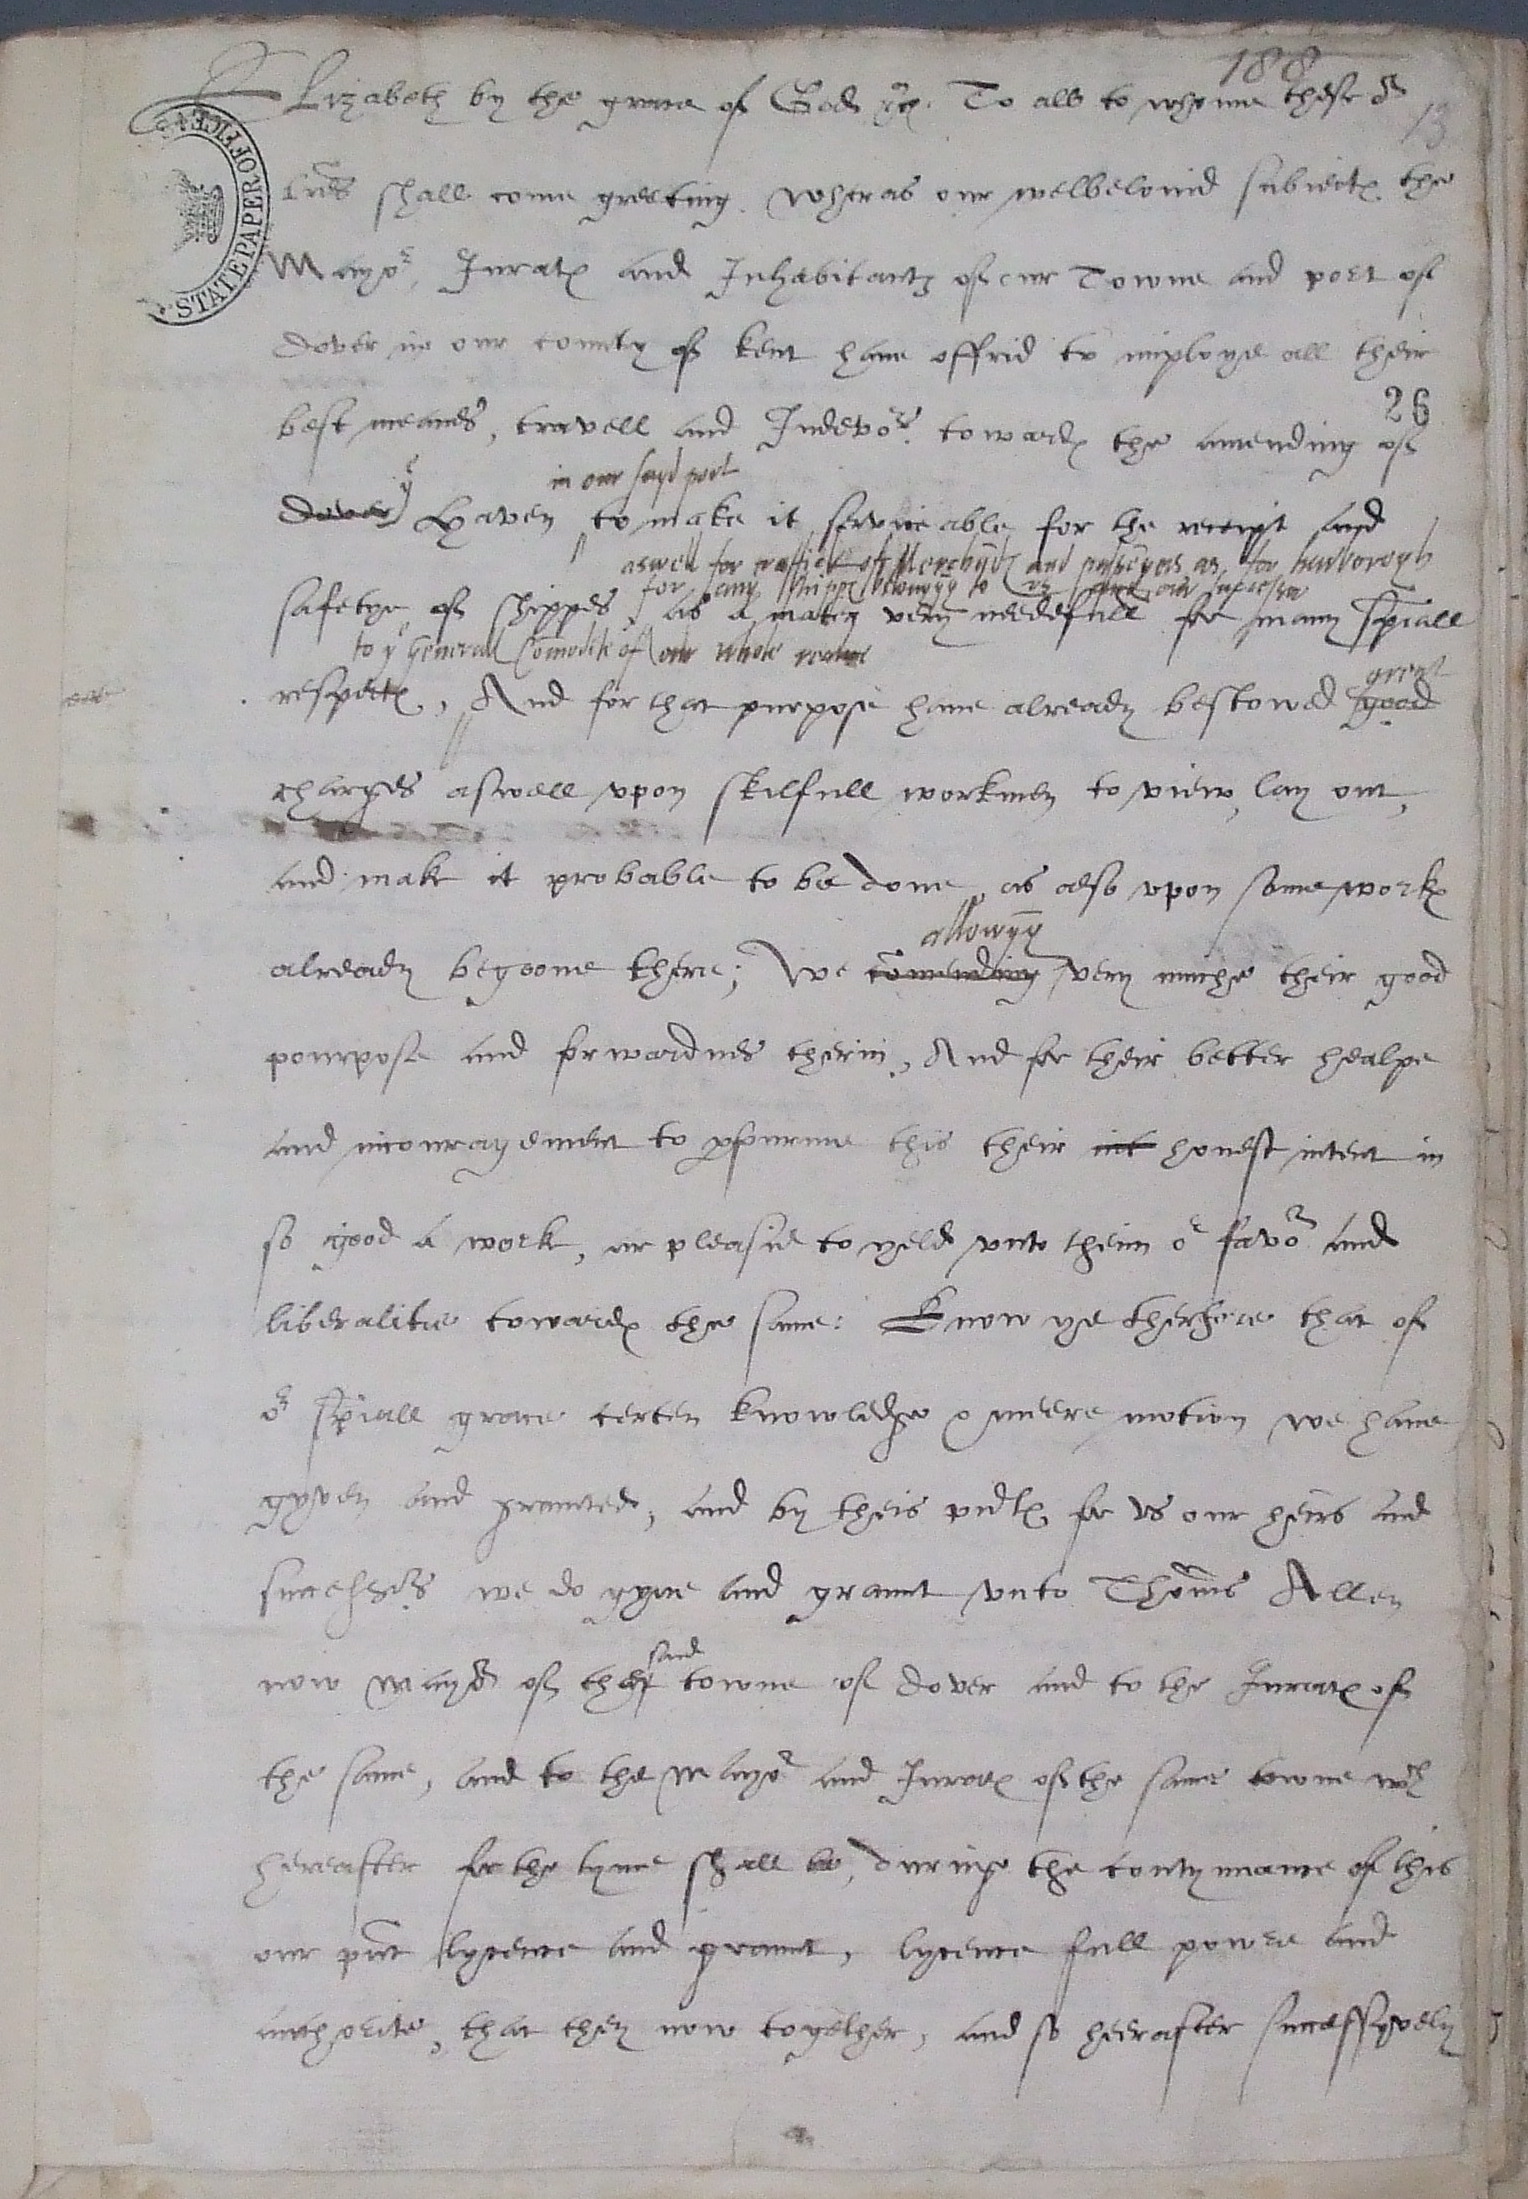 188
13
Elizabeth by the grace of God &c. To all to whome these or
lres shall come greeting. Wheras our welbelovid subiectes the
Mayor, Jurates and Inhabitantz of our Towne and port of
Dover in our county of Kent have offrid to imploye all their
26
best meanes, travell and Indevor towardes the amending of
in our sayd port
Dover ye Haven to make it serviceable for the receipt and
aswell for traffick of Merchantes and passengers as for harborogh
for any shippes belongyng to us and our
safetye of shippes, as a mater very needefull for many speciall
to ye generall Comodite of our whole realme
respectes, And for that purpose have already bestowed good
great
charges aswell upon skilfull workmen to view, lay out,
and make it probable to be done, as also upon some workes
allowyng
already begoone there; We comending very muche their good
pourpose and forwardnes therin, And for their better healpe
and incouragement to pfourme this their int honest intent in
so good a work, ar pleasid to yeld unto theim or favor and
liberalitie towardes the same: Know ye therfore that of
or speciall grace certen knowledge & meere motion we have
gyven and graunted, and by theis pntes for us our heirs and
successors we do gyve and graunt unto Thomas Allen
said
now mayor of the towne of Dover and to the Jurates of
the same, and to the mayor and Jurates of the same towne wch
hereafter for the tyme shall be, during the contynuance of this
our pnt lycence and graunt, lycence full power and
authoritie, that they now together, and so heerafter successyvely
STATE PAPER OFFICE